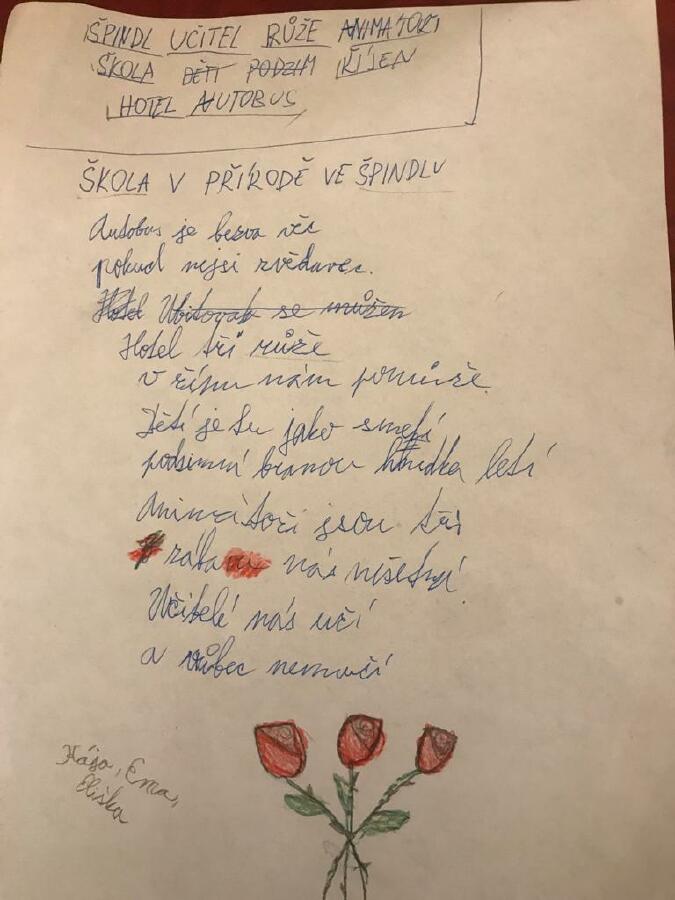 ŠPINDL UČITEL RŮŽE ANIMÁTOŘI
ŠKOLA DĚTI PODZIM ŘÍJEN
HOTEL AUTOBUS
ŠKOLA V PŘÍRODĚ VE ŠPINDLU
Autobus je bezva věc
pokud nejsi zvědavec.
Hotel Ubitovat se můžem
Hotel tři růže
v říjnu nám pomůže.
Dětí je tu jako smetí
podzimní branou letí
Animátoři jsou tři
nás nešetří
Učitelé nás učí
a vůbec nemučí
Kája, Ema,
Eliška